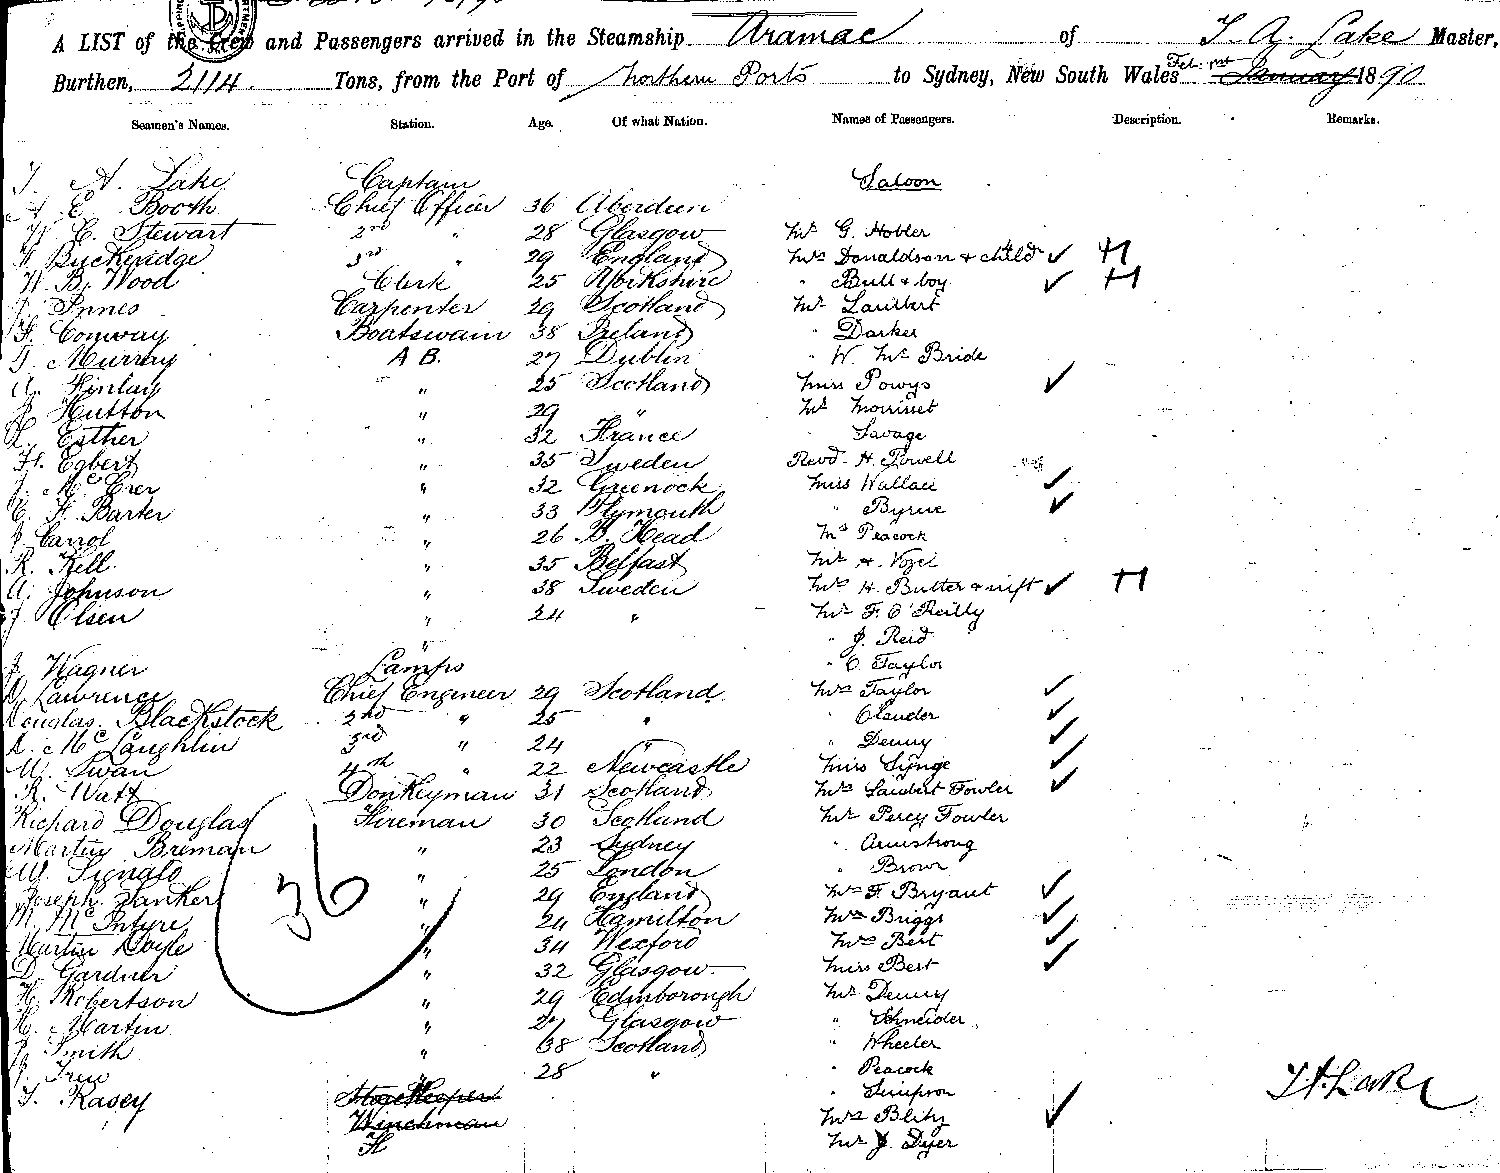 A LIST of the Crew and Passengers arrived in the Steamship Aramac of T. A. Lake Master,
Burthen, 2114 Tons, from the Port of Northern Ports to Sydney, New South Wales January 1890
Seamen's Names. Station. Age. Of what Nation. Names of Passengers. Description. Remarks.
T. A. Lake Captain Saloon
A E Booth Chief Officer 36 Aberdeen
W C. Stewart 2nd " 28 Glasgow Mr G. Hobler
Buckeridge 3rd " 29 England Mrs Donaldson & child ✓ H
W. B. Wood Clerk 25 Yorkshire " Bull & boy ✓ H
J. Innes Carpenter 29 Scotland Mr Lambert
F. Conway Boatswain 38 Ireland " Darker
T. Murray A B. 27 Dublin " W. Mc Bride
A. Finlay " 25 Scotland Miss Powys ✓
J. Hutton " 29 " Mr Morrisset
Esther " 32 France " Savage
H. Egbert " 35 Sweden Revd. H. Powell
J. Mc Crer " 32 Greenock Miss Wallace ✓
C. F. Barter " 33 Plymouth " Byrne ✓
J. Carrol " 26 B. Head Mrs Peacock
R. Kell " 35 Belfast Mr H. Vogel
A. Johnson " 38 Sweden Mrs H. Butter & ✓ H
J Olsen " 24 " Mr F. O'Reilly
" " J. Reid
J. Wagner Lamps " C. Taylor
D. Lawrence Chief Engineer 29 Scotland Mrs Taylor ✓
Douglas. Blackstock 2nd " 25 " " Clauder ✓
D. Mc Laughlin 3rd " 24 " " Denny ✓
W. Swan 4th " 22 Newcastle Miss Synge ✓
R. Watt Donkeyman 31 Scotland Mrs Laidert Fowler ✓
Richard Douglas Fireman 30 Scotland Mr Percy Fowler
Martin Breman " 23 Sydney " Armstrong
W. Signalo " 25 London " Brown
Joseph. Tanker " 29 England Mrs F. Bryant ✓
36
M. Mc Intyre " 24 Hamilton Mrs Briggs ✓
Martin Doyle " 34 Wexford Mrs Bert ✓
D. Gardner " 32 Glasgow Miss Best ✓
H. Robertson " 29 Edinborough Mr Denny
H. Martin " 27 Glasgow " Schneider
J. Smith " 38 Scotland " Wheeler
J. Trew " 28 " " Peacock
T. Kasey Storekeeper " Simpson
T A. Lake
Winchman Mrs Blitz ✓
Mr J. Dyer